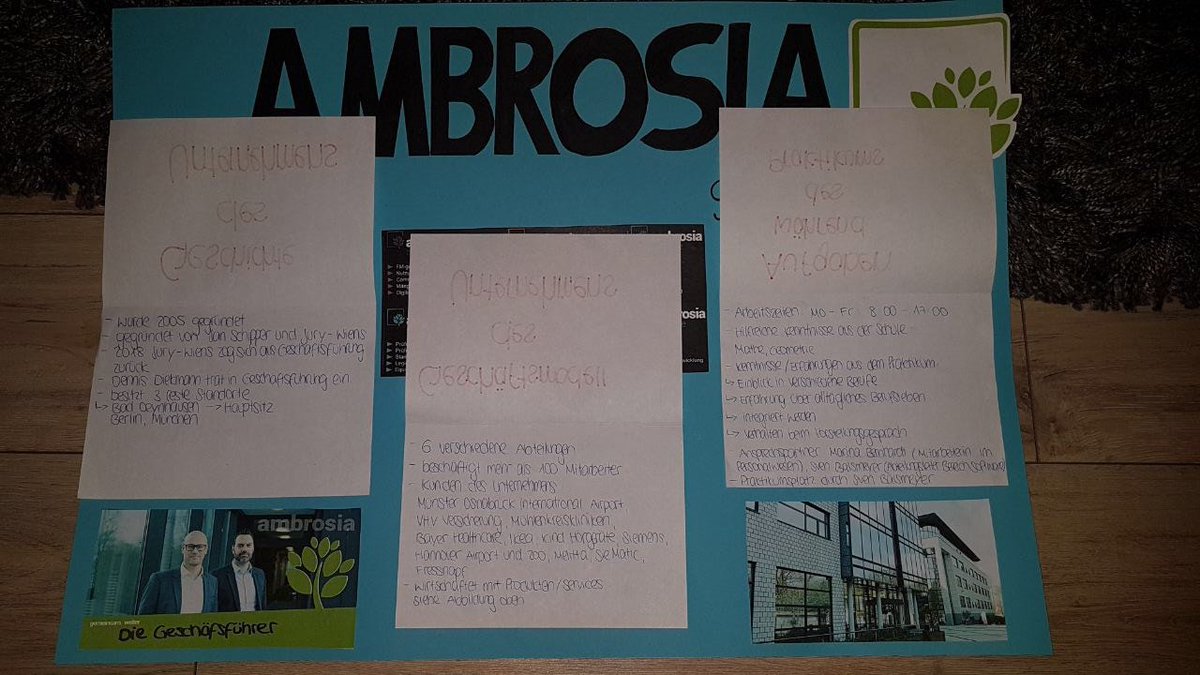 AMBROSIA
Geschichte
des
Unternehmens
- wurde 2005 gegründet
- gegründet von Jan Schipper und Jury-Wiens
- 2018 Jury-Wiens zog sich aus Geschäftsführung
zurück
- Dennis Diekmann trat in Geschäftsführung ein
- besitzt 3 feste Standorte
↳ Bad Oeynhausen → Hauptsitz
Berlin, München
ambrosia
gemeinsam. weiter.
Die Geschäfsführer
ambrosia
ambrosia
Geschäftsmodell
des
Unternehmens
- 6 verschiedene Abteilungen
- beschäftigt mehr als 100 Mitarbeiter
- Kunden des Unternehmens
Münster Osnabrück International Airport,
VHV Versicherung, Mühlenkreiskliniken,
Bayer Healthcare, Siemens,
Hannover Airport und Zoo, Melitta,
Fressnapf
- wirtschaftet mit Produkten/services
siehe Abbildung oben
Aufgaben
während
des
Praktikums
- Arbeitszeiten: MO - Fr 8:00 - 17:00
- Hilfreiche Kenntnisse aus der Schule
Mathe, Geometrie
- Kenntnisse / Erfahrungen aus dem Praktikum
↳ Einblick in verschiedene Berufe
↳ Erfahrung über alltägliches Berufsleben
↳ integriert werden
↳ Verhalten beim Vorstellungsgespräch
Ansprechpartner Marina (Mitarbeiterin im
Personalwesen), Sven (Abteilungsleiter Bereich Software)
- Praktikumsplatz durch Sven